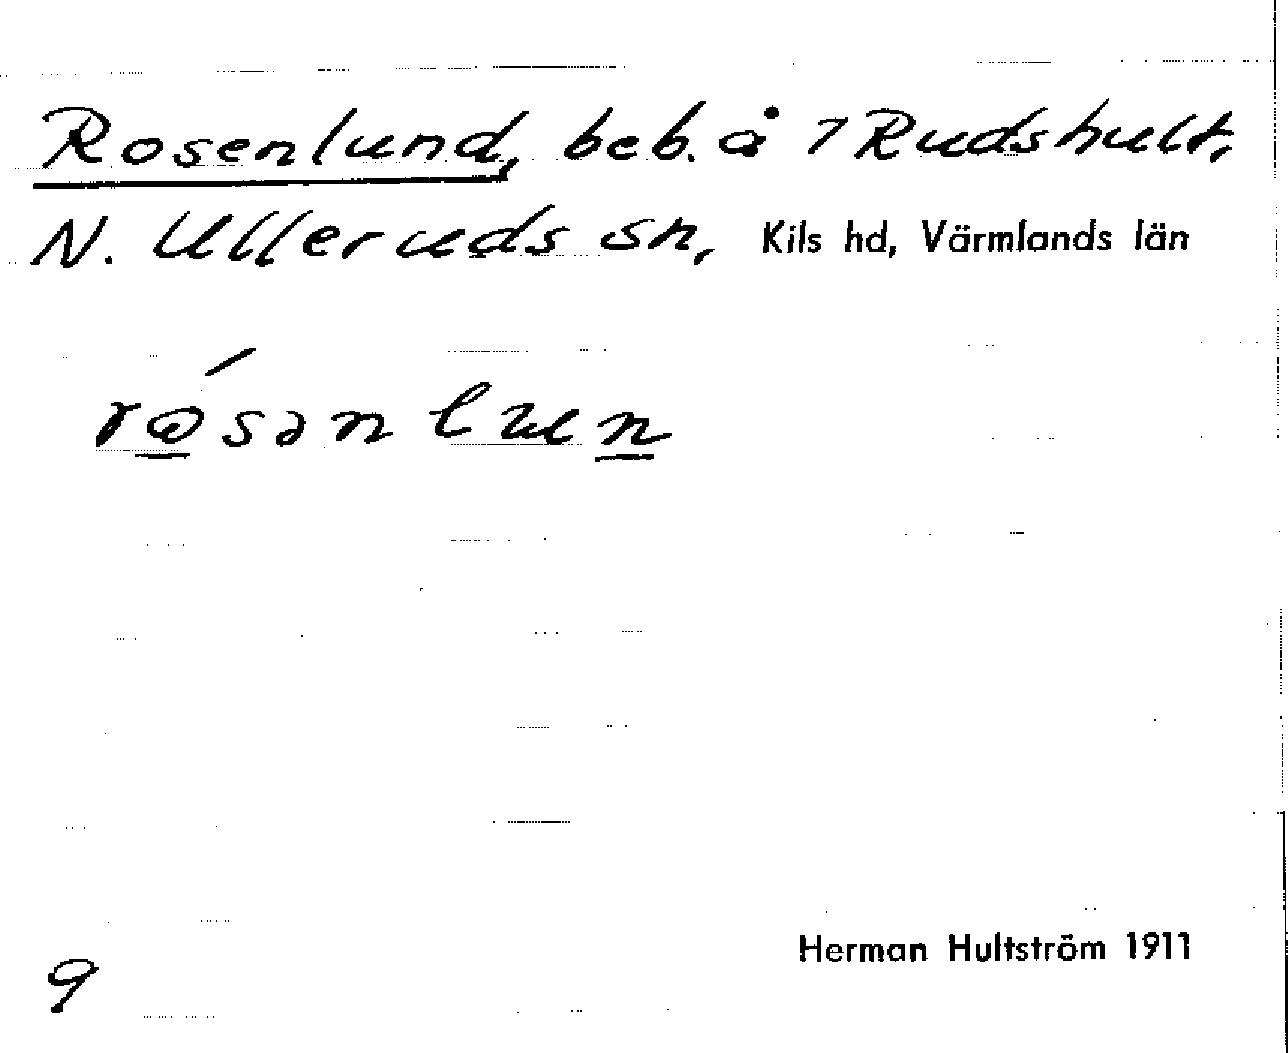 Rosenlund, beb. å 7 Rudshult,
N. Ulleruds sn, Kils hd, Värmlands län
9
Herman Hultström 1911